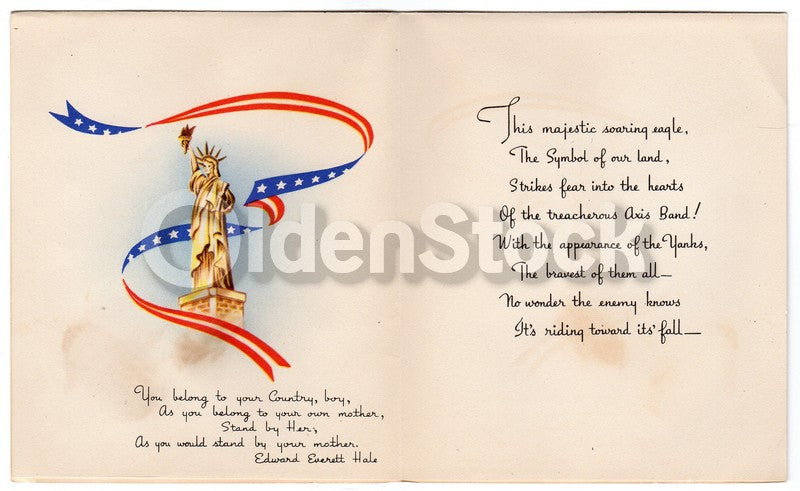 You belong to your Country, boy,
As you belong to your own mother,
Stand by Her,
As you would stand by your mother.
Edward Everett Hale
This majestic soaring eagle,
The Symbol of our land,
Strikes fear into the hearts
Of the treacherous Axis Band!
With the appearance of the Yanks,
The bravest of them all—
No wonder the enemy knows
It's riding toward its' fall—
OldenStock